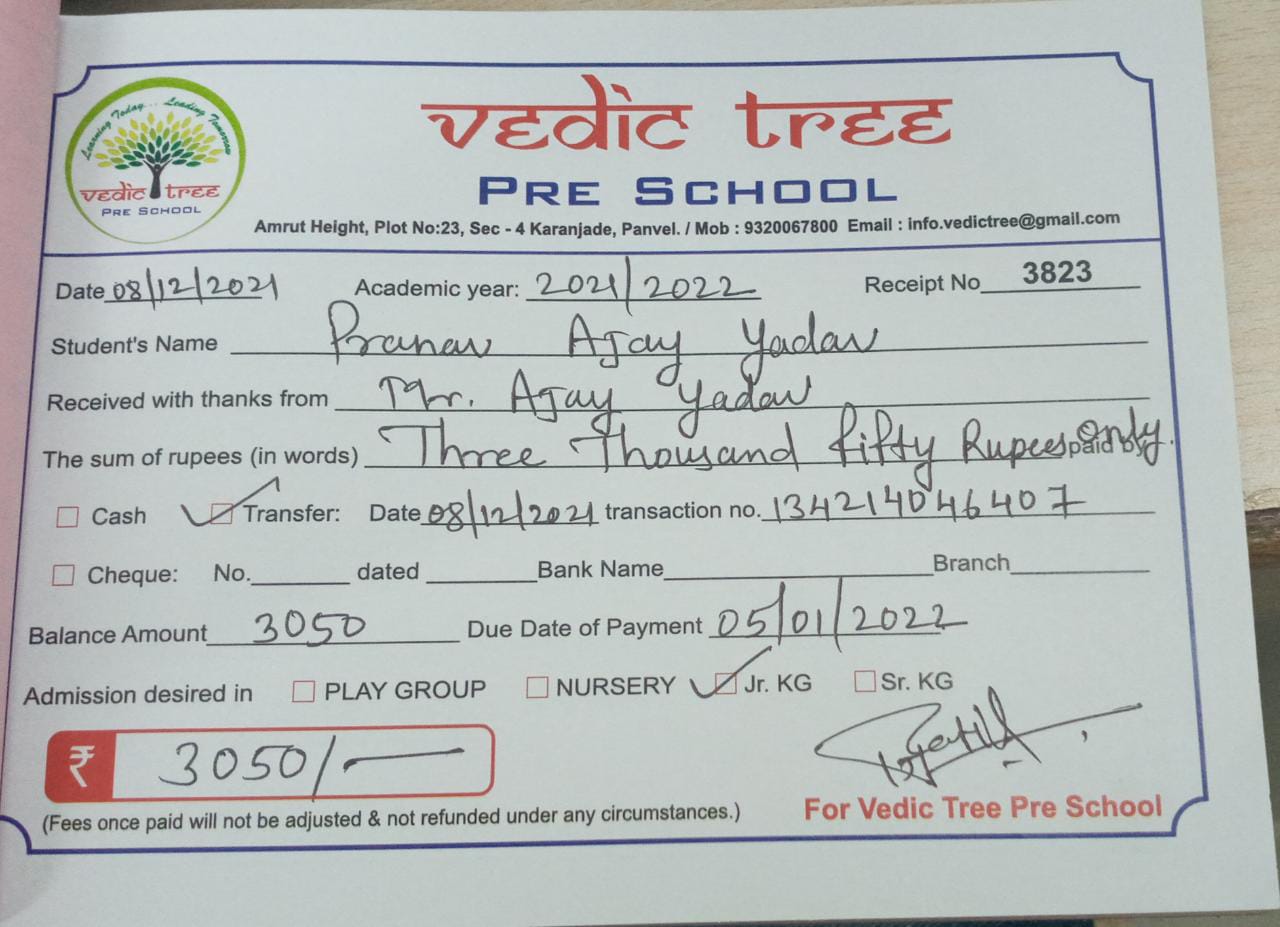 Learning Today... Leading Tomorrow
vedic tree
PRE SCHOOL
vedic tree
PRE SCHOOL
Amrut Height, Plot No:23, Sec - 4 Karanjade, Panvel. / Mob : 9320067800 Email : info.vedictree@gmail.com
Date 08/12/2021 Academic year: 2021/2022 Receipt No 3823
Student's Name Pranav Ajay Yadav
Received with thanks from Mr. Ajay Yadav
The sum of rupees (in words) Three Thousand Fifty Rupees Only. paid by
Cash Transfer: Date 08/12/2021 transaction no. 134214046407
Cheque: No. dated Bank Name Branch
Balance Amount 3050 Due Date of Payment 05/01/2022
Admission desired in PLAY GROUP NURSERY Jr. KG Sr. KG
₹ 3050/-
(Fees once paid will not be adjusted & not refunded under any circumstances.)
For Vedic Tree Pre School